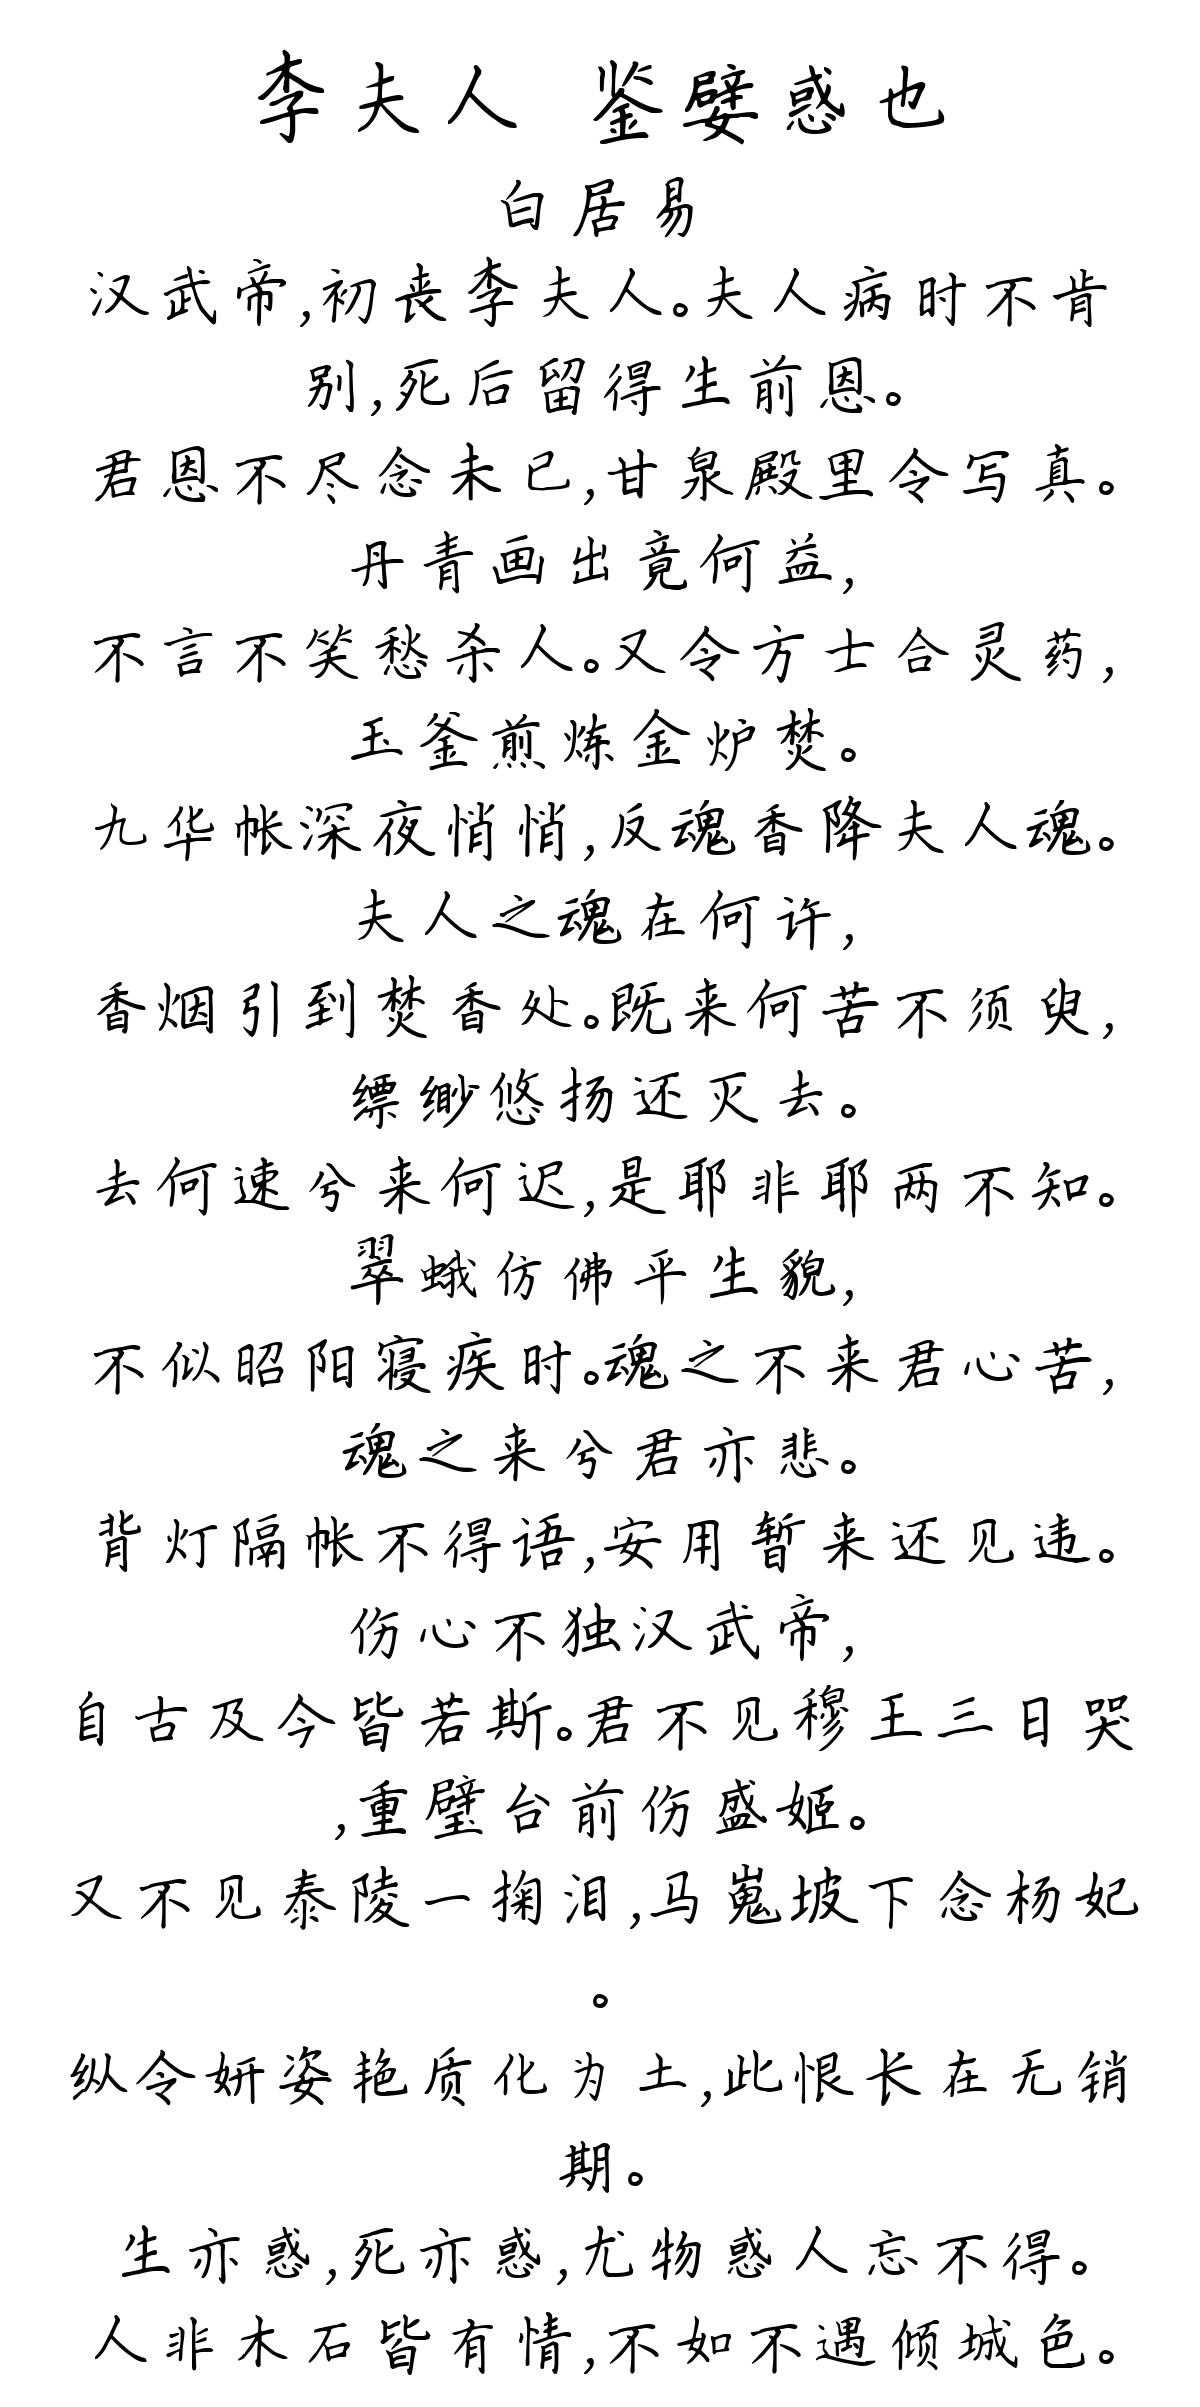 李夫人 鉴嬖惑也
白居易
汉武帝,初丧李夫人。夫人病时不肯
别,死后留得生前恩。
君恩不尽念未已,甘泉殿里令写真。
丹青画出竟何益,
不言不笑愁杀人。又令方士合灵药,
玉釜煎炼金炉焚。
九华帐深夜悄悄,反魂香降夫人魂。
夫人之魂在何许,
香烟引到焚香处。既来何苦不须臾,
缥缈悠扬还灭去。
去何速兮来何迟,是耶非耶两不知。
翠蛾仿佛平生貌,
不似昭阳寝疾时。魂之不来君心苦,
魂之来兮君亦悲。
背灯隔帐不得语,安用暂来还见违。
伤心不独汉武帝,
自古及今皆若斯。君不见穆王三日哭
,重璧台前伤盛姬。
又不见泰陵一掬泪,马嵬坡下念杨妃
。
纵令妍姿艳质化为土,此恨长在无销
期。
生亦惑,死亦惑,尤物惑人忘不得。
人非木石皆有情,不如不遇倾城色。